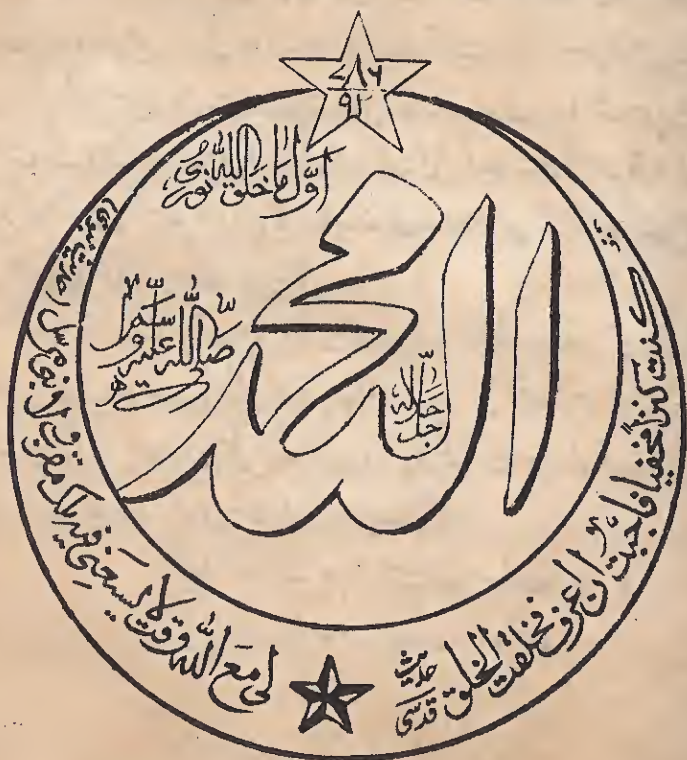 ٧٨٦
٩٢
اوّل ما خلق اللہ نوری
محمد
اللہ
صلی اللہ علیہ وسلم
جل جلالہ
کنت کنزاً مخفیا فاحببت ان اعرف فخلقت الخلق
حدیث قدسی
لی مع اللہ وقت لا یسعنی فیہ ملک مقرب ولا نبی مرسل